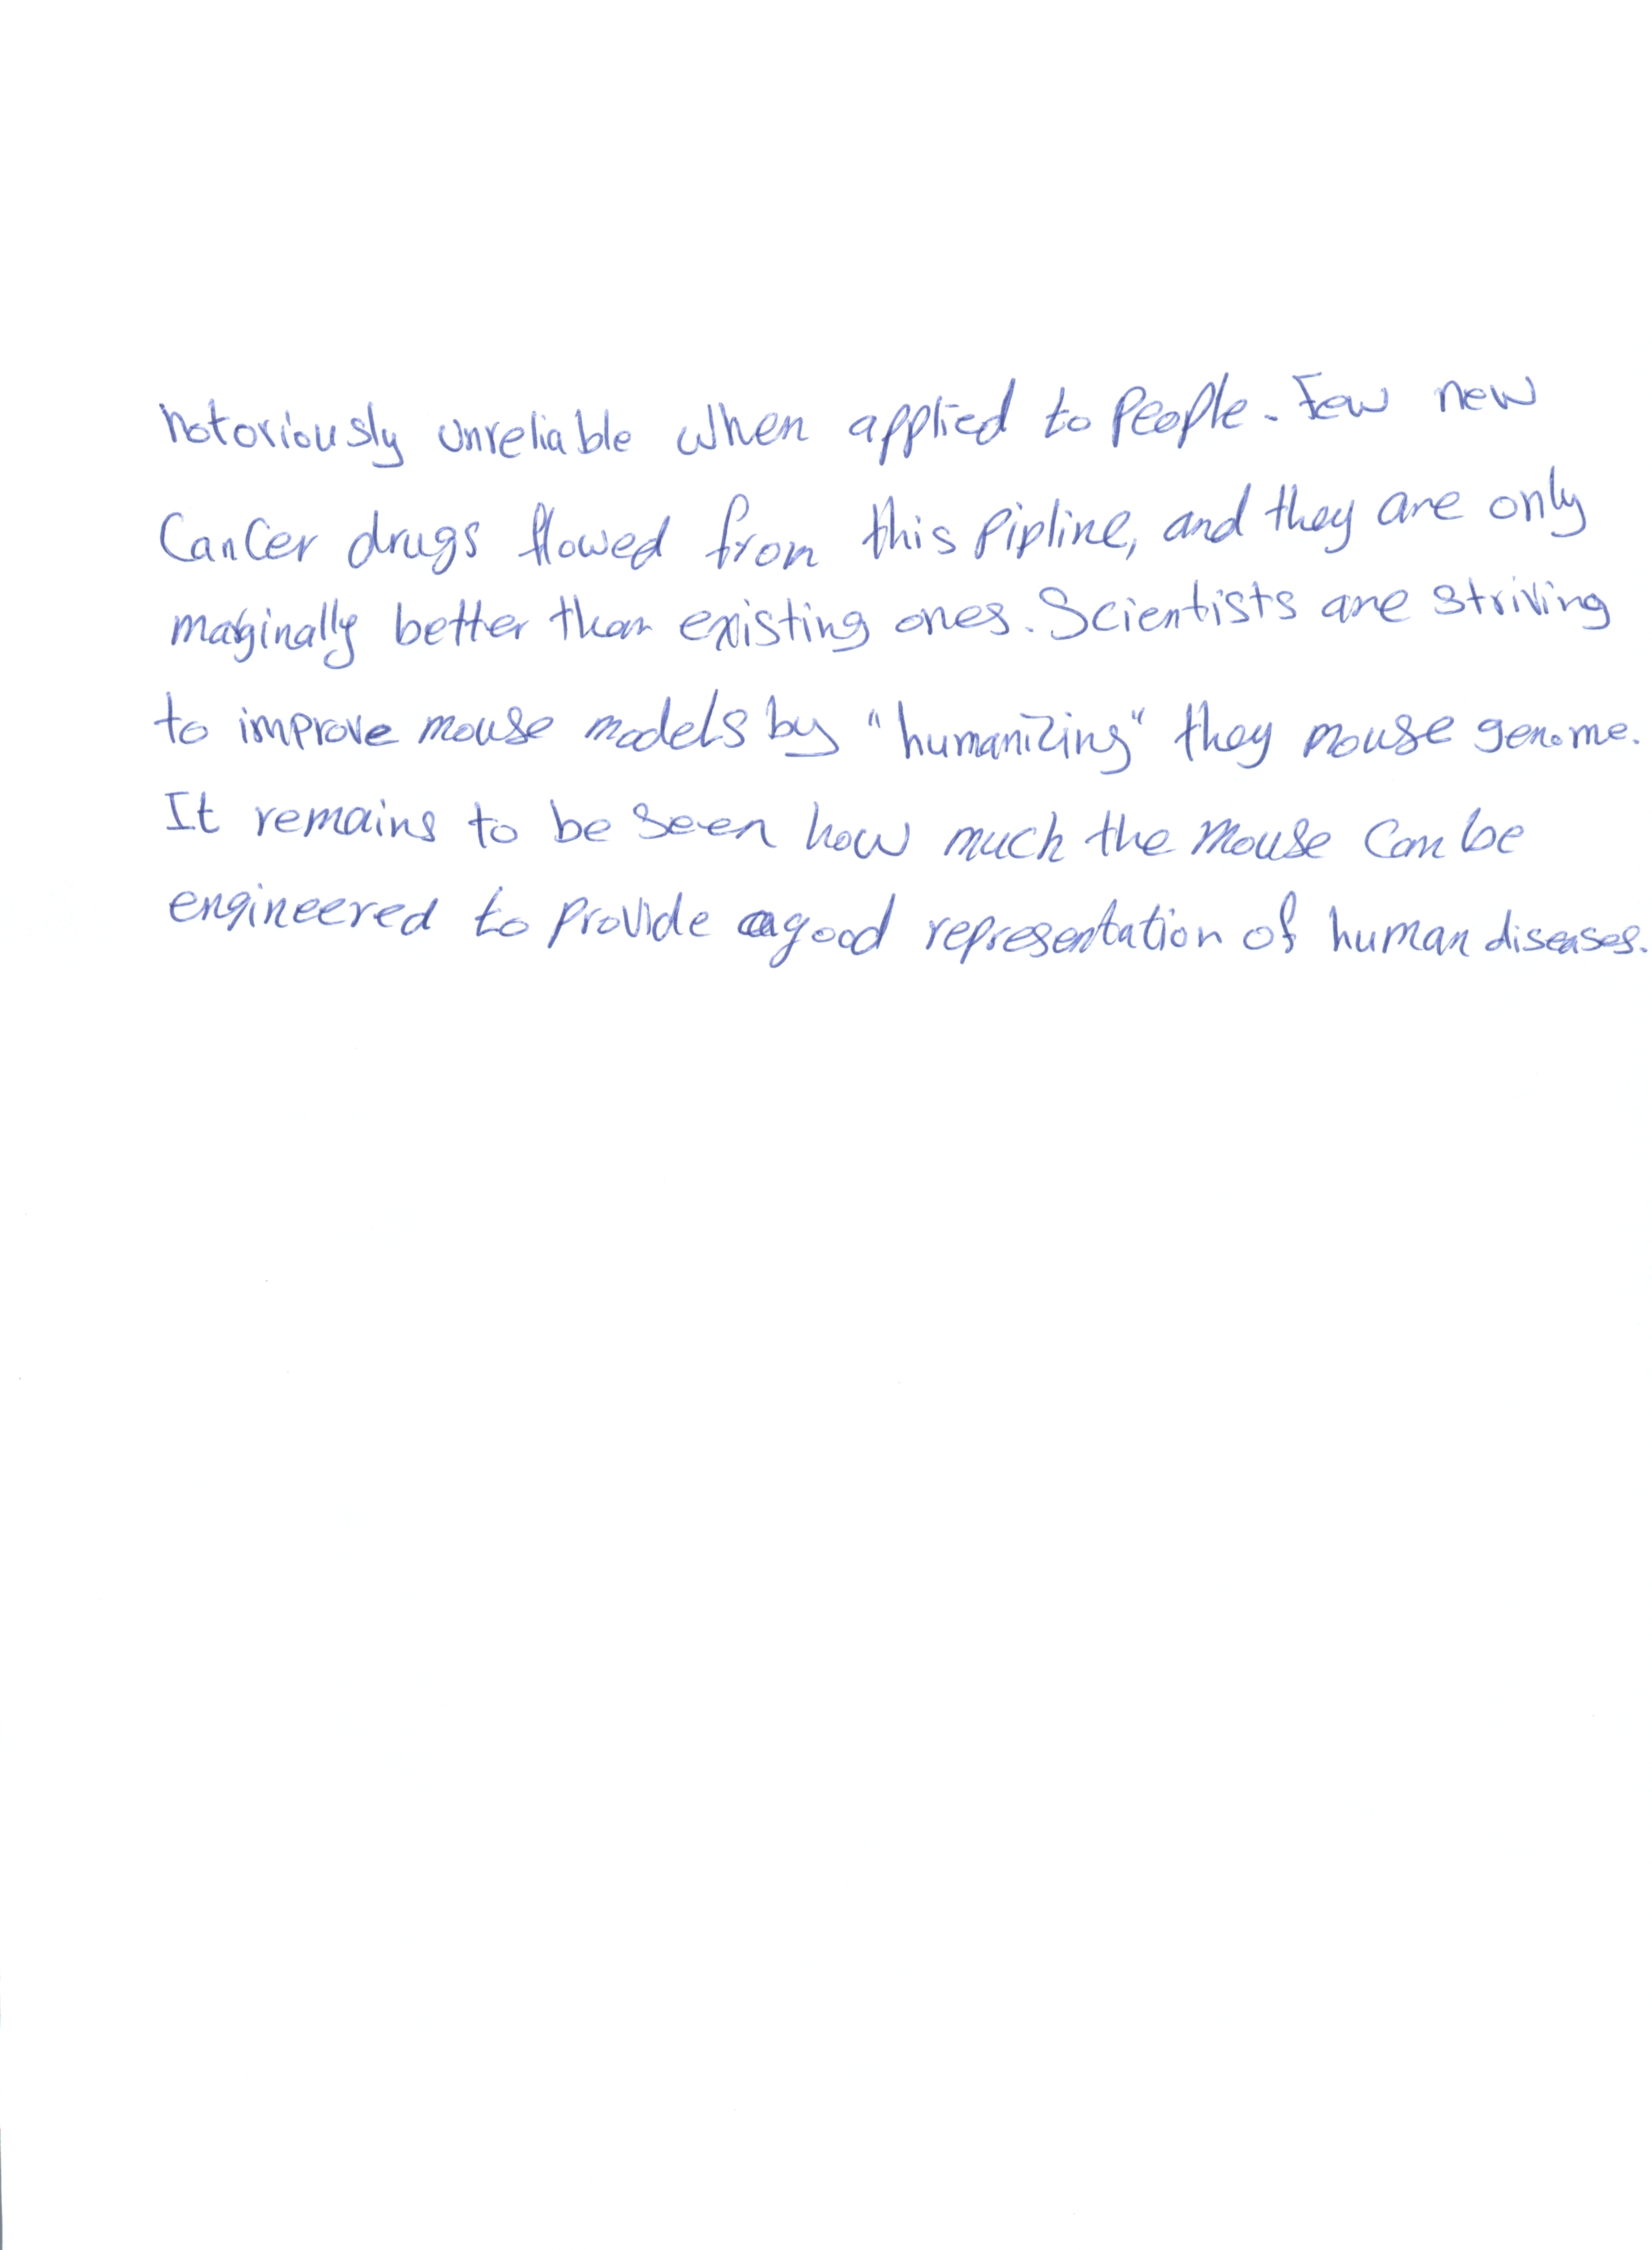 notoriously unreliable when applied to people. Few new
Cancer drugs flowed from this pipline, and they are only
marginally better than existing ones. Scientists are striving
to improve mouse models by "humanizing" they mouse genome.
It remains to be seen how much the mouse can be
engineered to provide a good representation of human diseases.